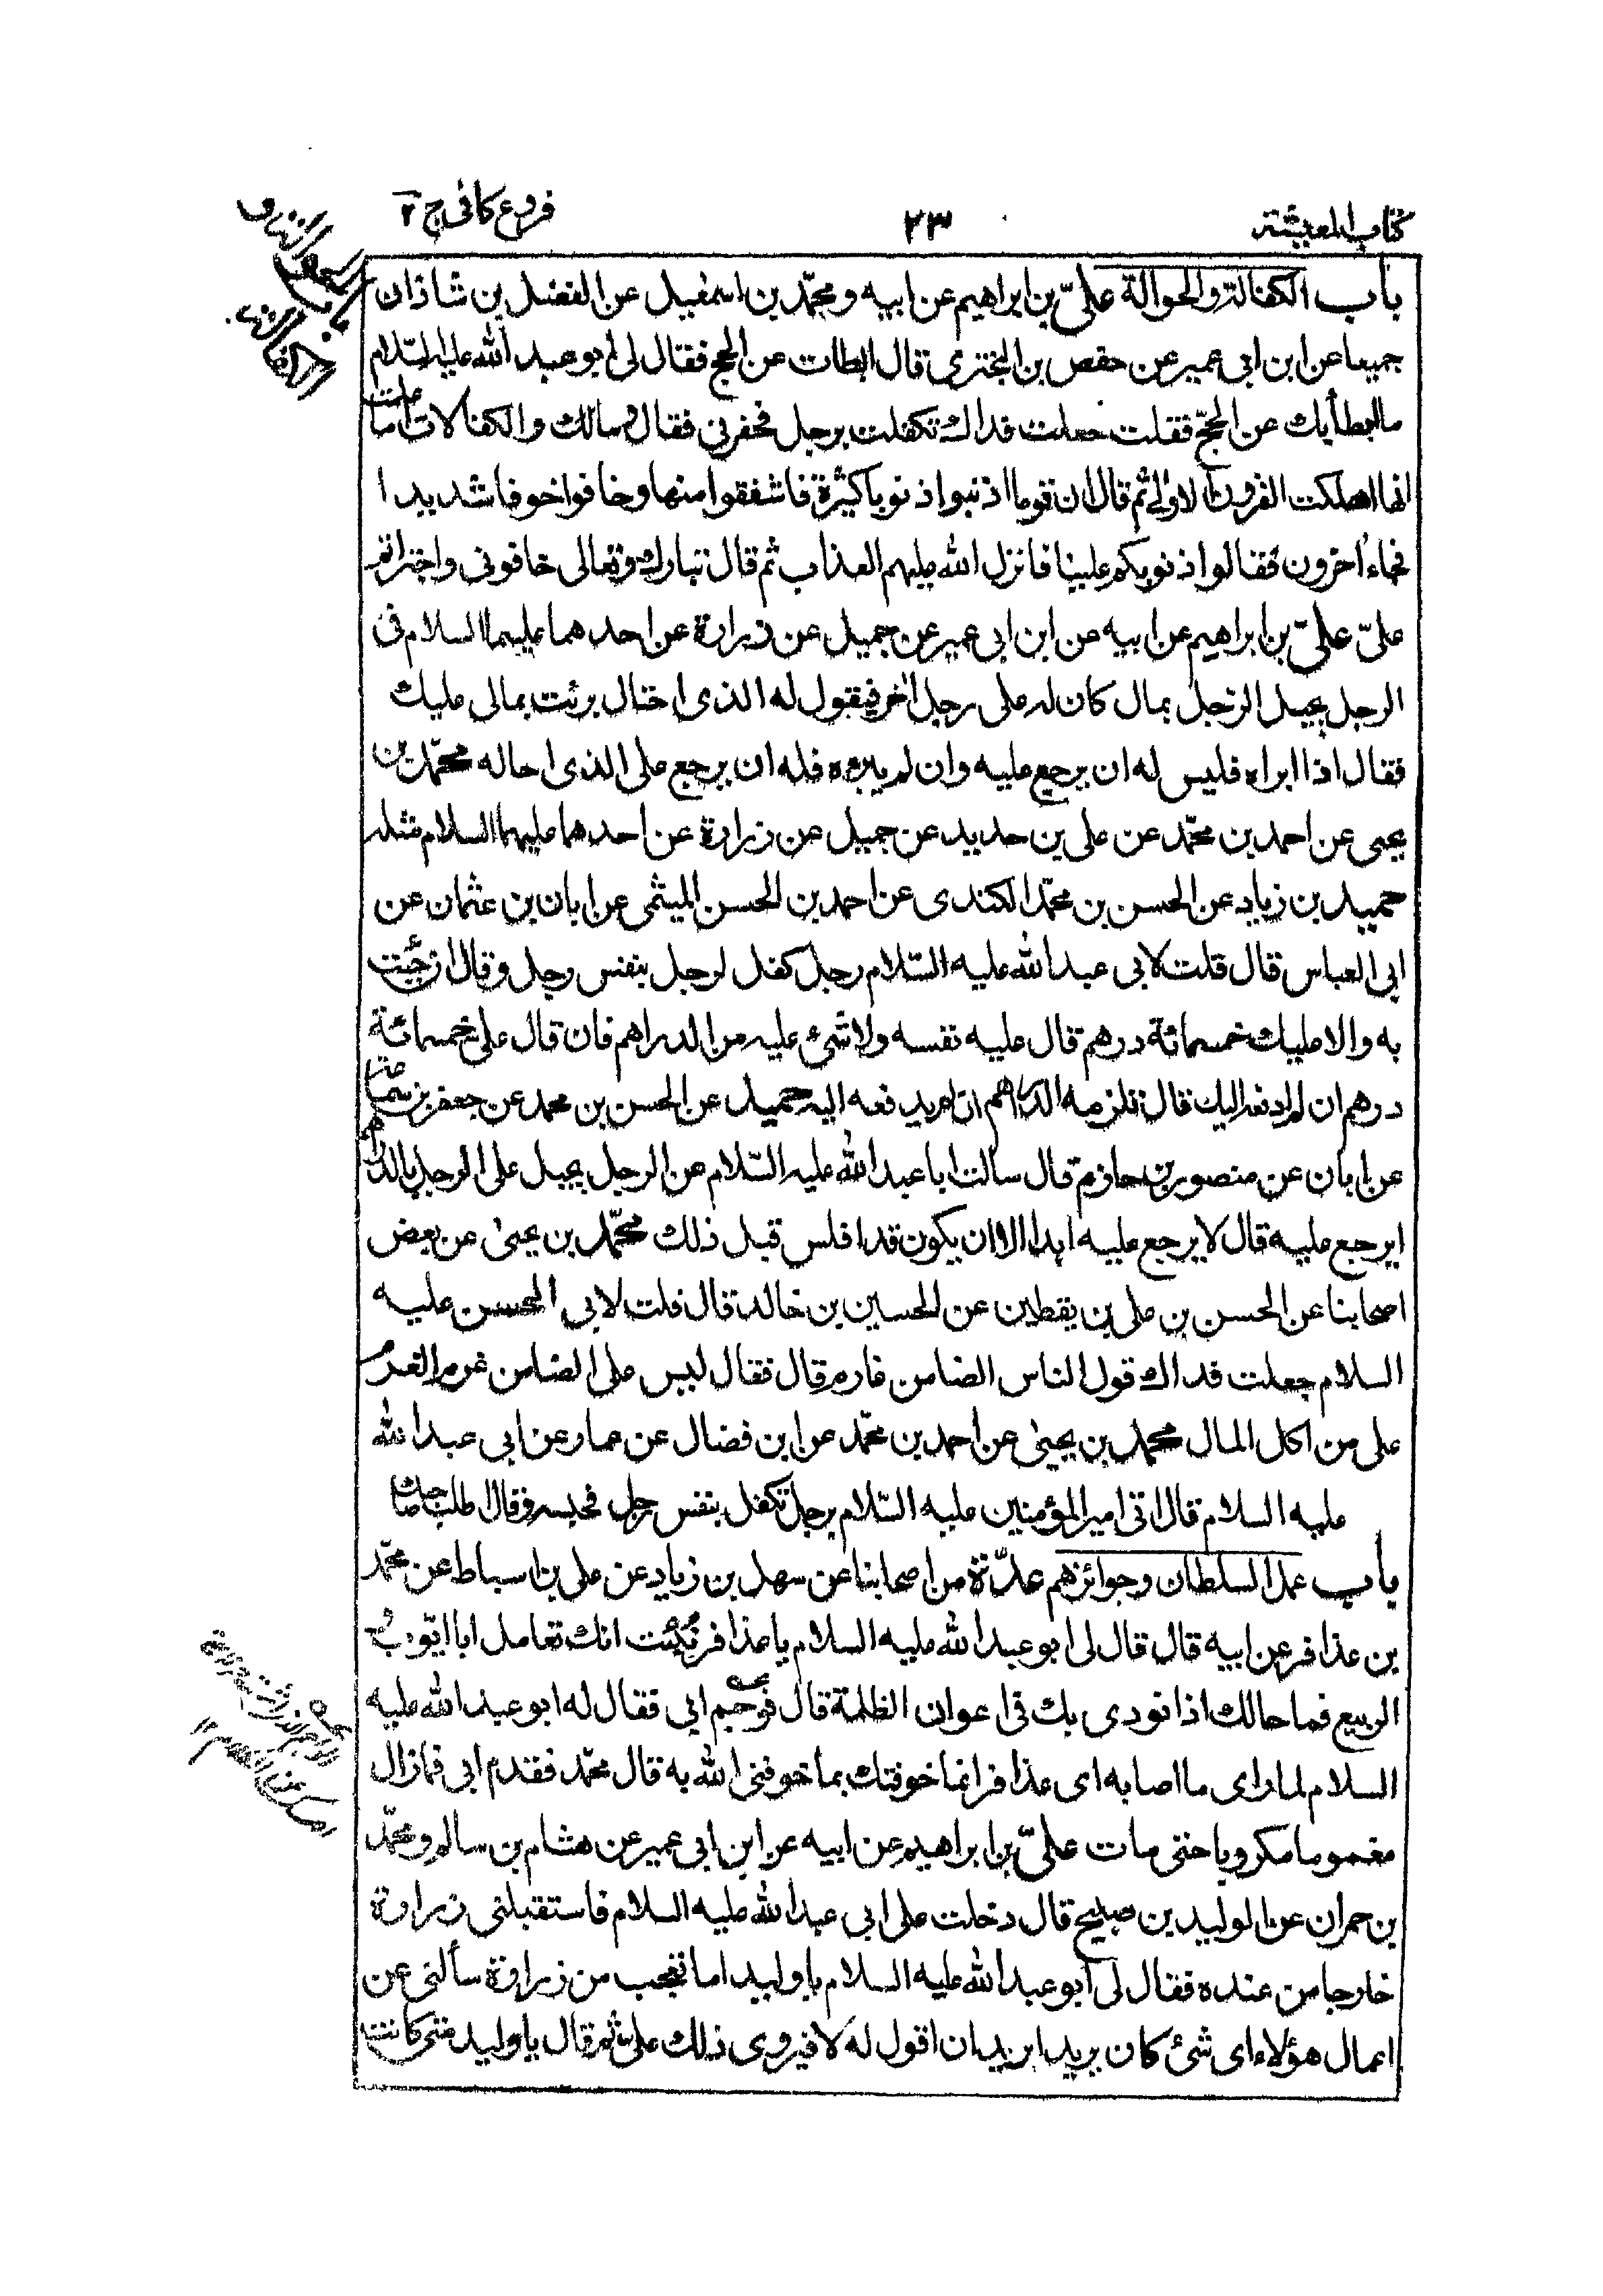 كتاب المعيشة
٢٣
فروع كافى ج ٢
باب الكفالة والحوالة علىّ بن ابراهيم عن ابيه ومحمّد بن اسمعيل عن الفضل بن شاذان
جميعا عن ابن ابى عمير عن حفص بن البخترى قال ابطات عن الحج فقال لى ابو عبد الله عليه السّلام
ما ابطأ بك عن الحجّ فقلت جعلت فداك تكفلت برجل فخفرنى فقال مالك والكفالات اما علمت
انها اهلكت القرون الاولى ثم قال ان قوما اذنبوا ذنوبا كثيرة فاشفقوا منها وخافوا خوفا شديدا
فجاء اخرون فقالوا ذنوبكم علينا فانزل الله عليهم العذاب ثم قال تبارك وتعالى خافونى واجترأتم
علىّ علىّ بن ابراهيم عن ابيه عن ابن ابى عمير عن جميل عن زرارة عن احدهما عليهما السلام فى
الرجل يحيل الرجل بمال كان له على رجل اخر فيقول له الذى احتال برئت بمالى عليك
فقال اذا ابراه فليس له ان يرجع عليه وان لم يبرءه فله ان يرجع على الذى احاله محمّد بن
يحيى عن احمد بن محمّد عن على بن حديد عن جميل عن زرارة عن احدهما عليهما السلام مثله
حميد بن زياد عن الحسن بن محمّد الكندى عن احمد بن الحسن الميثمى عن ابان بن عثمان عن
ابى العباس قال قلت لابى عبد الله عليه السّلام رجل كفل لرجل بنفس رجل وقال ان جئت
به والا عليك خمسمائة درهم قال عليه نفسه ولا شىء عليه من الدراهم فان قال علىّ خمسمائة
درهم ان لم ادفعه اليك قال تلزمه الدراهم ان لم يدفعه اليه حميد عن الحسن بن محمد عن جعفر بن سماعة
عن ابان عن منصور بن حازم قال سالت ابا عبد الله عليه السّلام عن الرجل يحيل على الرجل بالدراهم
ايرجع عليه قال لا يرجع عليه ابدا الا ان يكون قد افلس قبل ذلك محمّد بن يحيى عن بعض
اصحابنا عن الحسن بن على بن يقطين عن الحسين بن خالد قال قلت لابى الحسن عليه
السلام جعلت فداك قول الناس الضامن غارم قال فقال ليس على الضامن غرم الغرم
على من اكل المال محمد بن يحيى عن احمد بن محمّد عن ابن فضال عن عمار عن ابى عبد الله
عليه السلام قال اتى امير المؤمنين عليه السّلام برجل تكفل بنفس رجل فحبسه وقال اطلب صاحبك
باب عمل السلطان وجوائزهم عدّة من اصحابنا عن سهل بن زياد عن على بن اسباط عن محمّد
بن عذافر عن ابيه قال قال لى ابو عبد الله عليه السلام يا عذافر نبّئت انك تعامل ابا ايّوب و
الربيع فما حالك اذا نودى بك فى اعوان الظلمة قال فوجم ابى فقال له ابو عبد الله عليه
السلام لما راى ما اصابه اى عذافر انما خوفتك بما خوفنى الله به قال محمّد فقدم ابى فما زال
مغموما مكروبا حتى مات علىّ بن ابراهيم عن ابيه عن ابن ابى عمير عن هشام بن سالم ومحمّد
بن حمران عن الوليد بن صبيح قال دخلت على ابى عبد الله عليه السلام فاستقبلنى زرارة
خارجا من عنده فقال لى ابو عبد الله عليه السلام يا وليد اما تعجب من زرارة سألنى عن
اعمال هؤلاء اى شئ كان يريد ايريد ان اقول له لا فيروى ذلك علىّ ثم قال يا وليد متى كانت